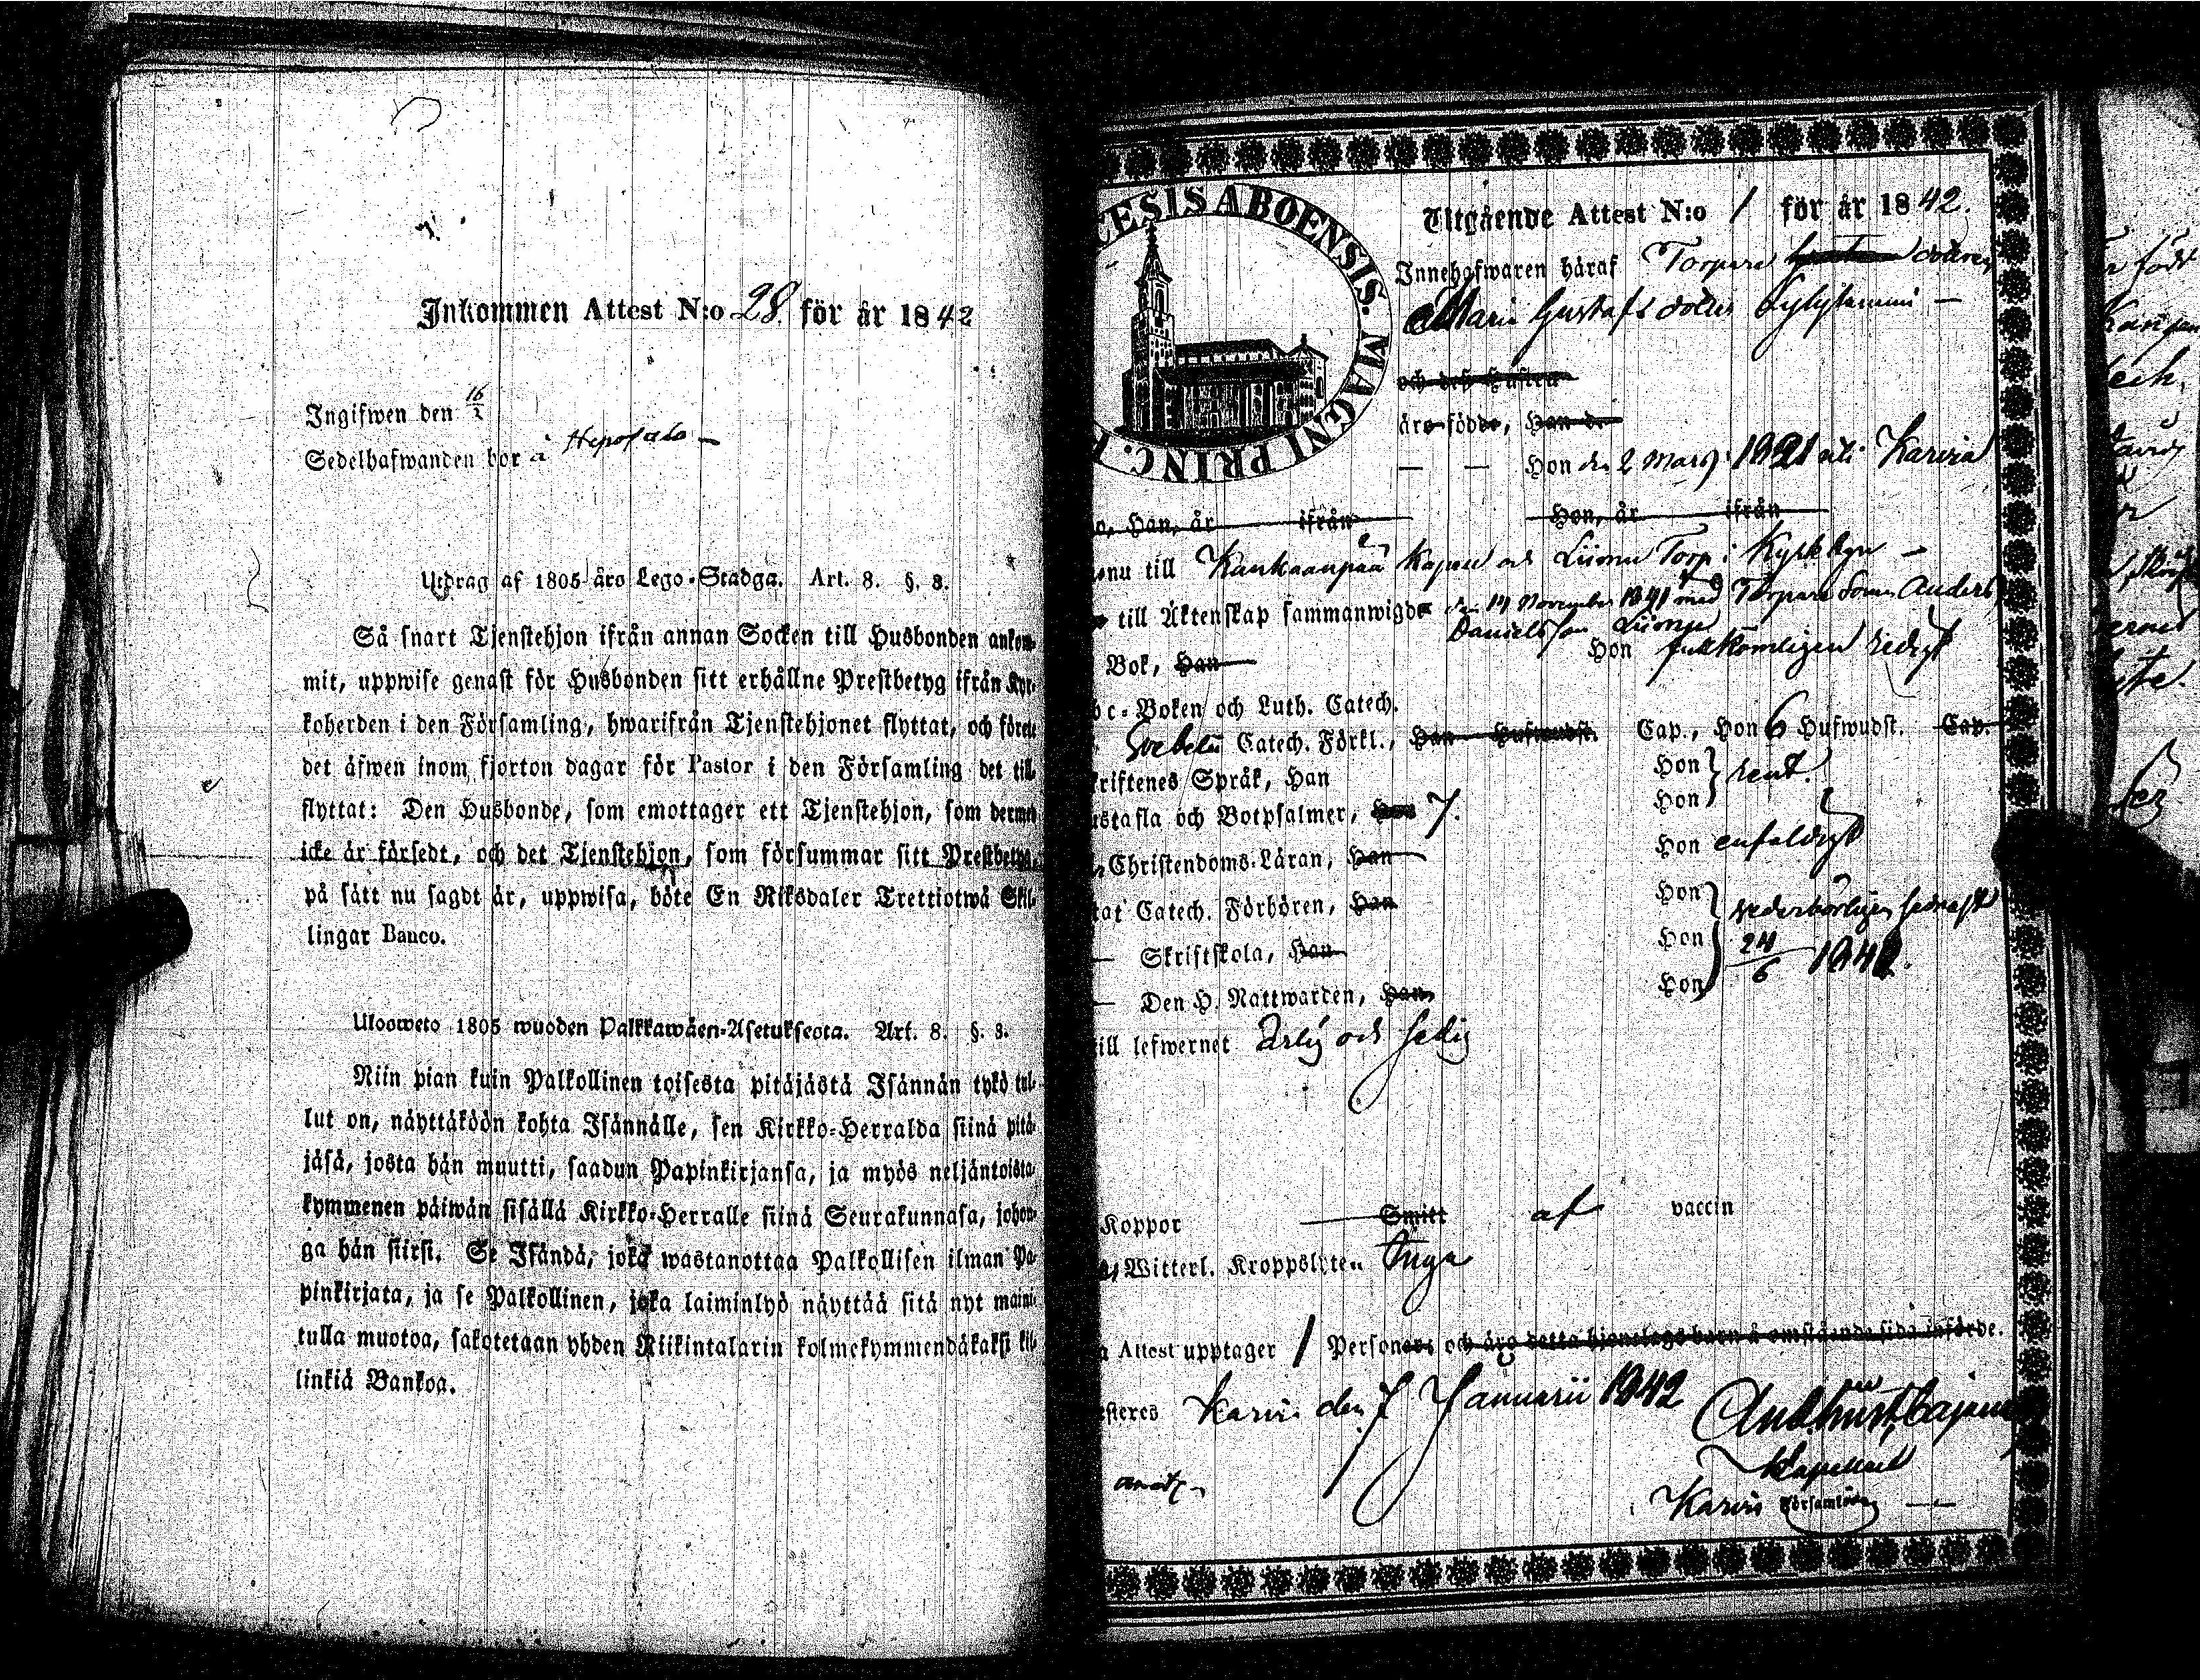 Inkommen Attest N:o 28. för år 1842
Ingifwen den 16/2
Sedelhafwanden bor å
Utdrag af 1805 åro Lego-Stadga. Art. 8. §. 8.
Så snart Tjenstehjon ifrån annan Socken till Husbonden ankom-
mit, uppwise genast för Husbonden sitt erhållne Prestbetyg ifrån Kyr-
koherden i den Församling, hwarifrån Tjenstehjonet flyttat, och förete
det äfwen inom fjorton dagar för Pastor i den Församling det till-
flyttat: Den Husbonde, som emottager ett Tjenstehjon, som dermed
icke är försedt, och det Tjenstehjon, som försummar sitt Prestbetyg,
på sätt nu sagdt är, uppwisa, böte En Riksdaler Trettiotwå Skil-
lingar Banco.
Uloosweto 1805 wuoden Palkkawäen-Asetuksesta. Art. 8. §. 8.
Niin pian kuin Palkollinen toisesta pitäjästä Isännän tykö tul-
lut on, näyttäköön kohta Isännälle, sen Kirkko-Herralda siinä pitä-
jäsä, josta hän muutti, saadun Papinkirjansa, ja myös neljäntoista-
kymmenen päiwän sisällä Kirkko-Herralle siinä Seurakunnasa, johon-
ga hän siirsi. Se Isändä, joka wastanottaa Palkollisen ilman Pa-
pinkirjata, ja se Palkollinen, joka laiminlyö näyttää sitä nyt maini-
tulla muotoa, sakotetaan yhden Riikintalarin kolmekymmendäkaksi kil-
linkiä Bankoa.
CESIS ABOENSIS. MAGNI PRINC. F
Utgående Attest N:o 1 för år 1842.
Innehafwaren häraf Torpare dotren
Maria Gustafs dotter
och deß Hustru
äro födde, Han d.
Hon den 2 Martii 1821 uti Karvia
Han, är ifrån Hon, är ifrån
nu till Kankaanpää Kapell och Liimu Torp i Kyrkbyn
till Äktenskap sammanwigde den 14 November 1841 med Torpare Sonen Anders
Danielsson Liimu
Bok, Han Hon fullkomligen redigt
b c-Boken och Luth. Catech.
Svebelii Catech. Förkl., Han Hufwudst. Cap., Hon 6 Hufwudst. Cap.
kriftenes Språk, Han Hon } rent.
ustafla och Botpsalmer, Han 7. Hon
Christendoms-Läran, Han Hon enfaldigt
tat Catech. Förhören, Han Hon } wederbörligen
Skriftskola, Han Hon 24/6
Den H. Nattwarden, Han Hon
till lefwernet ärlig och sedig
Koppor Smitt af vaccin
Witterl. Kroppslyten Inga
a Attest upptager 1 Personers och äro detta hjonelags barn å omstående sida införde.
esteres Karvia den 7 Januarii 1842
Kapellan
Karvia Församling